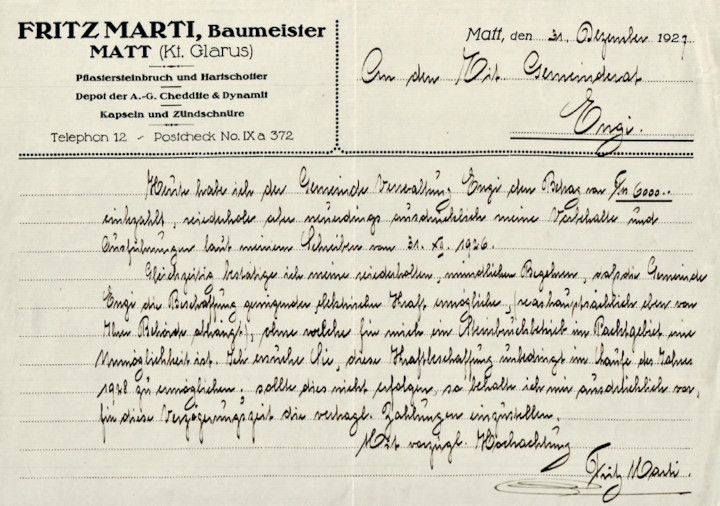 FRITZ MARTI, Baumeister
MATT (Kt. Glarus)
Pflastersteinbruch und Hartschotter
Depot der A.-G. Cheddite & Dynamit
Kapseln und Zündschnüre
Telephon 12 - Postcheck No. IXa 372
Matt, den 31. Dezember 1927
An den Tit. Gemeinderat
Engi.
Heute habe ich der Gemeinde Verwaltung Engi den Betrag von Frs 6000.-
einbezahlt, wiederhole aber neuerdings ausdrücklich meine Vorbehalte und
Ausführungen laut meinem Schreiben vom 31. XII. 1926.
Gleichzeitig bestätige ich meine wiederholten, mündlichen Begehren, daß die Gemeinde
Engi die Beschaffung genügender elektrischer Kraft ermögliche, (was hauptsächlich eben von
Ihrer Behörde abhängt), ohne welche für mich ein Steinbruchbetrieb im Pachtgebiet eine
Unmöglichkeit ist. Ich ersuche Sie, diese Kraftbeschaffung unbedingt im Laufe des Jahres
1928 zu ermöglichen. sollte dies nicht erfolgen, so behalte ich mir ausdrücklich vor,
für diese Verzögerungszeit die vertragl. Zahlungen einzustellen.
Mit vorzügl. Hochachtung
Fritz Marti.